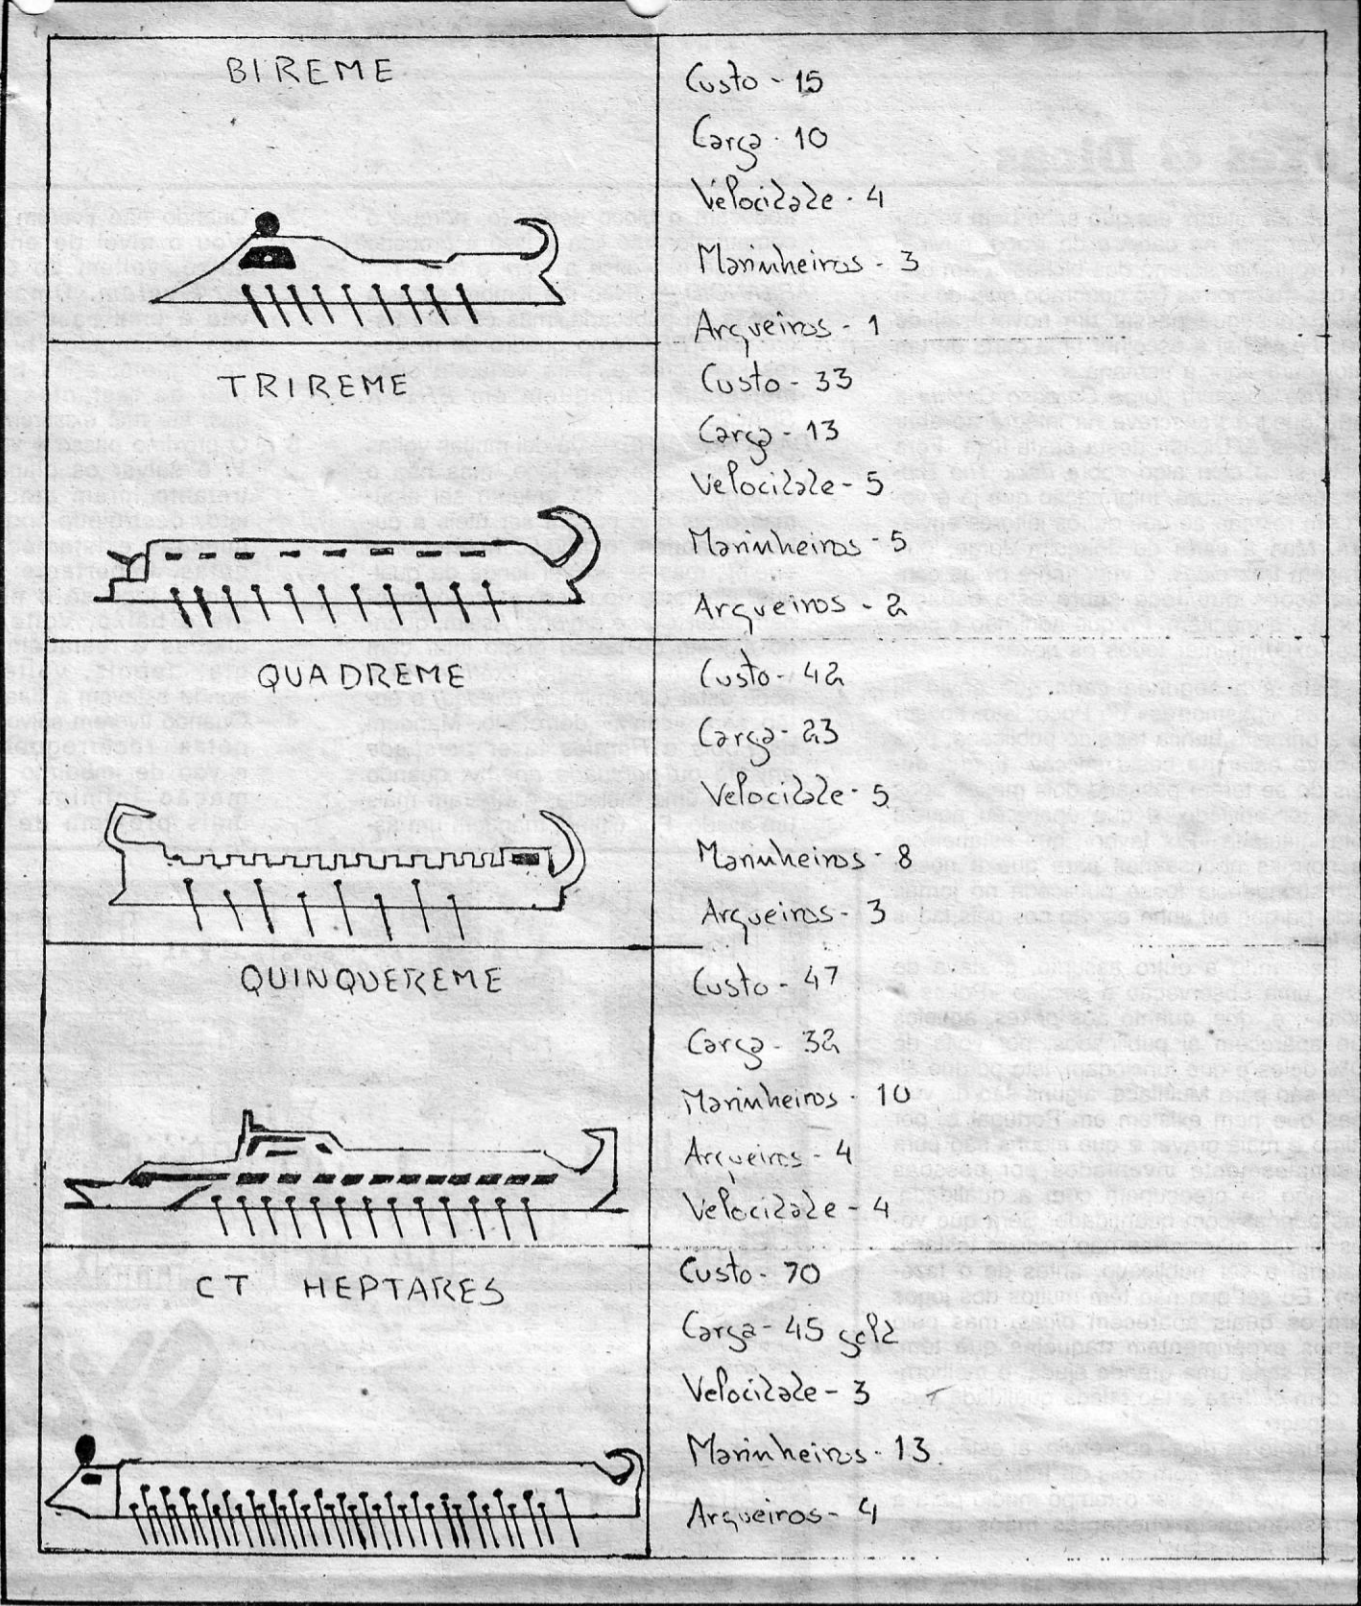 BIREME
Custo - 15
Carga - 10
Velocidade - 4
Marinheiros - 3
Arqueiros - 1
TRIREME
Custo - 33
Carga - 13
Velocidade - 5
Marinheiros - 5
Arqueiros - 2
QUADREME
Custo - 42
Carga - 23
Velocidade - 5
Marinheiros - 8
Arqueiros - 3
QUINQUEREME
Custo - 47
Carga - 32
Marinheiros - 10
Arqueiros - 4
Velocidade - 4
CT HEPTARES
Custo - 70
Carga - 45 gold
Velocidade - 3
Marinheiros - 13
Arqueiros - 4